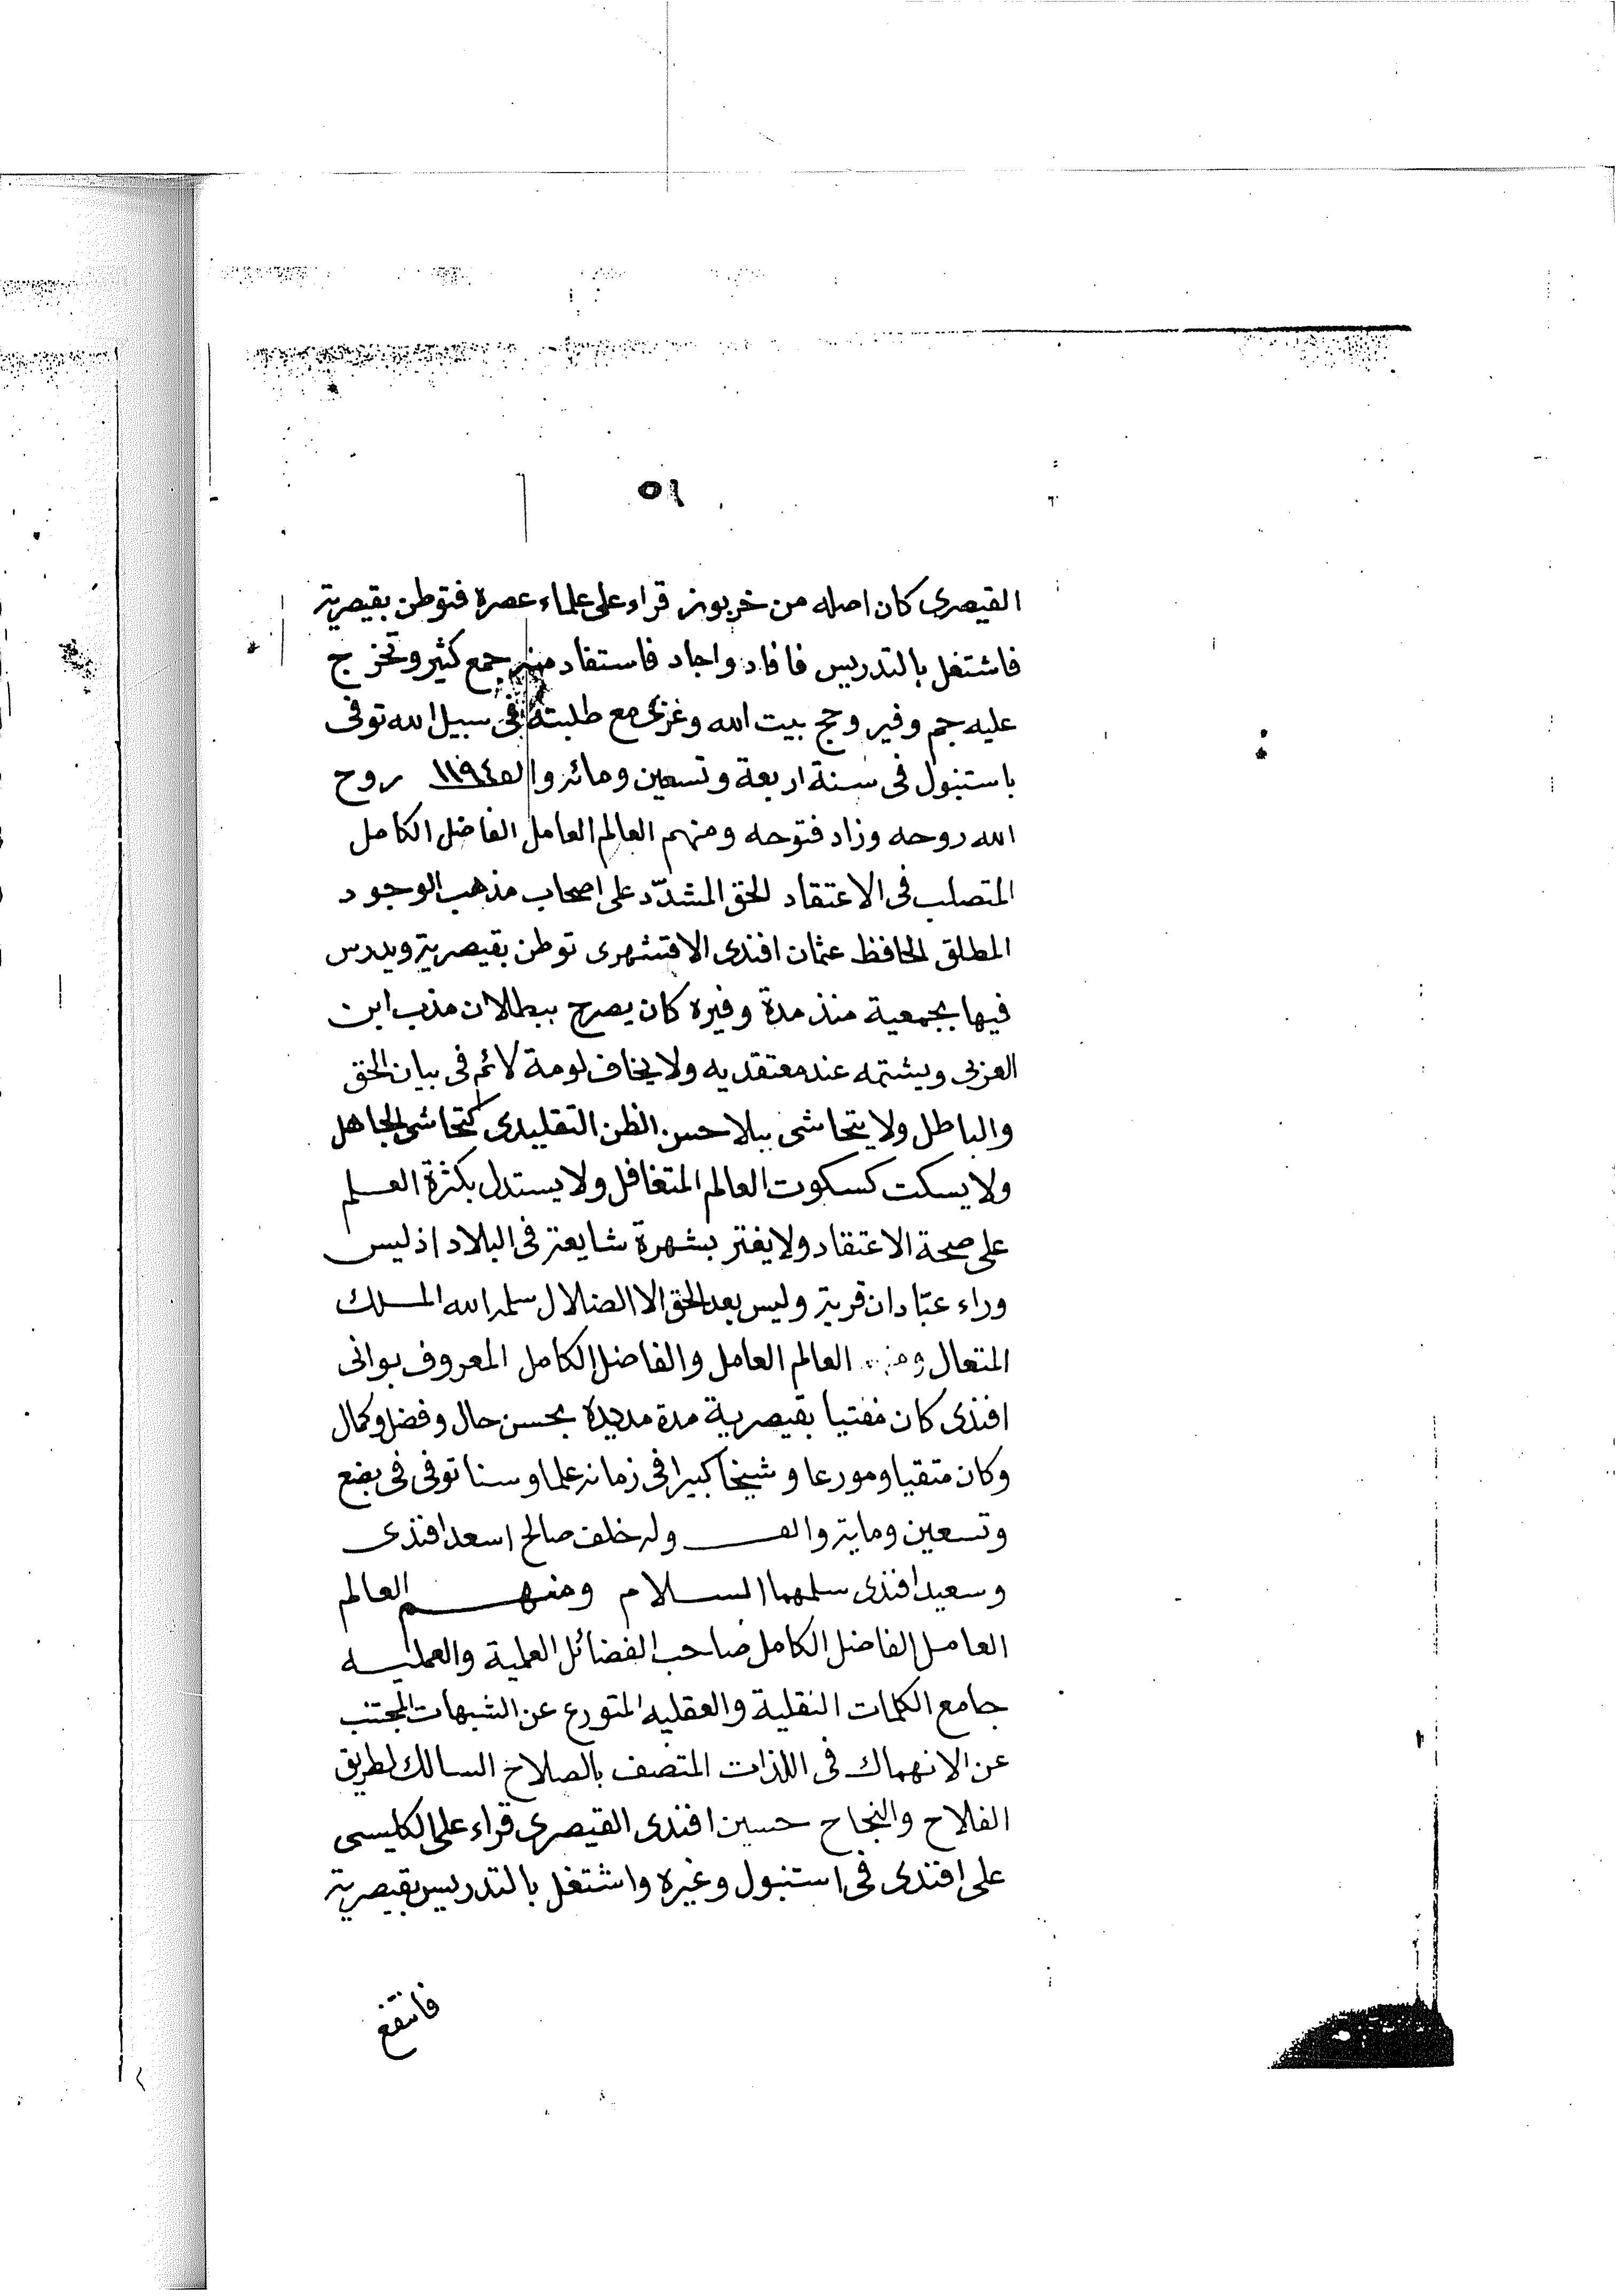 ٥١
القيصرى كان اصله من خربوز قراء على علماء عصره فتوطن بقيصرية
فاشتغل بالتدريس فافاد واجاد فاستفاد منه جمع كثير وتخرج
عليه جم وفير وحج بيت الله وغزى مع طلبته فى سبيل الله توفى
باستنبول فى سنة اربعة وتسعين ومائة والف ١١٩٤ روح
الله روحه وزاد فتوحه ومنهم العالم العامل الفاضل الكامل
المتصلب فى الاعتقاد الحق المشدّد على اصحاب مذهب الوجود
المطلق الحافظ عثمان افندى الاقشهرى توطن بقيصرية ويدرس
فيها بجمعية منذ مدة وفيره كان يصرح ببطلان مذهب ابن
العربى ويشتمه عند معتقديه ولا يخاف لومة لائم فى بيان الحق
والباطل ولا يتحاشى ببلا حسن الظن التقليدى كتحاشى الجاهل
ولا يسكت كسكوت العالم المتغافل ولا يستدل بكثرة العلم
على صحة الاعتقاد ولا يغتر بشهرة شايعة فى البلاد اذ ليس
وراء عبّادان قرية وليس بعد الحق الا الضلال سلمه الله الملك
المتعال العالم العامل والفاضل الكامل المعروف بوانى
افندى كان مفتيا بقيصرية مدة مديدة بحسن حال وفضل وكمال
وكان متقيا ومورعا وشيخا كبيرا فى زمانه علما وسنا توفى فى بضع
وتسعين وماية والف وله خلف صالح اسعد افندى
وسعيد افندى سلمهما السلام ومنهم العالم
العامل الفاضل الكامل صاحب الفضائل العلمية والعمليه
جامع الكلمات النقلية والعقليه المتورع عن الشبهات المجتنب
عن الانهماك فى اللذات المتصف بالصلاح السالك لطريق
الفلاح والنجاح حسين افندى القيصرى قراء على الكليسى
على افندى فى استنبول وغيره واشتغل بالتدريس بقيصرية
فانتفع